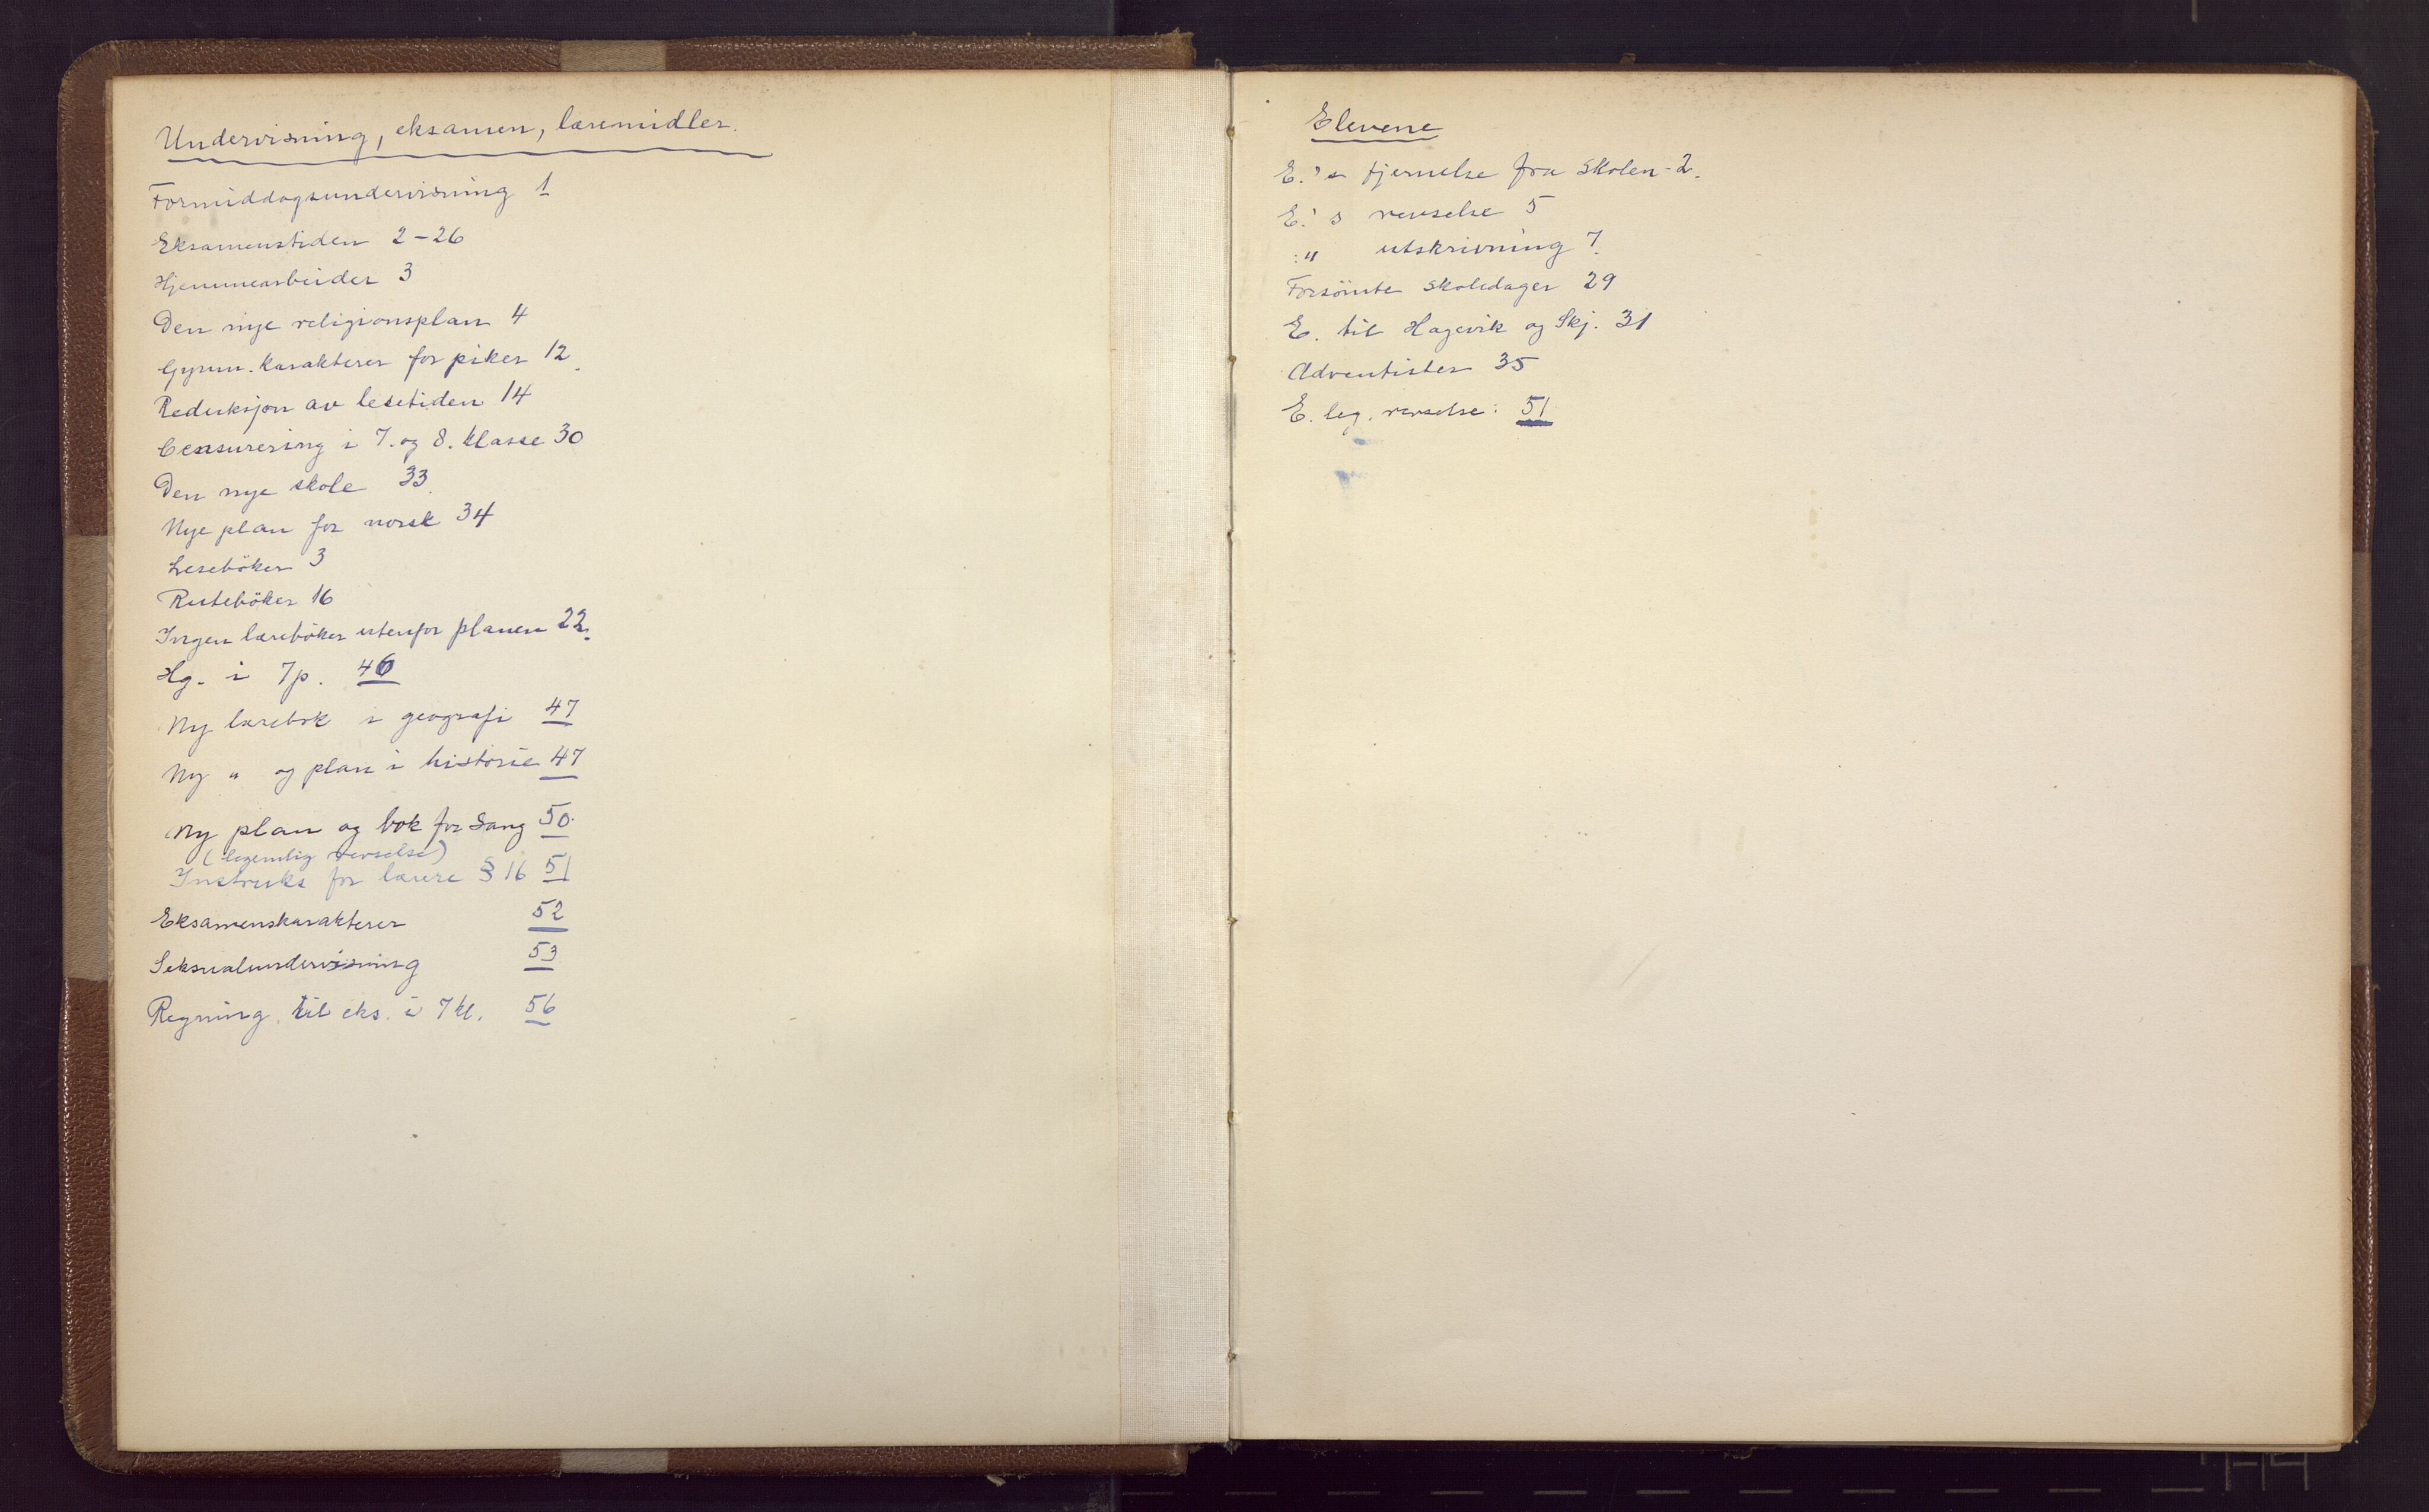 Undervisning, eksamen, læremidler.
Formiddagsundervisning 1
Eksamenstiden 2-26
Hjemmearbeider 3
Den nye religionsplan 4
Gymn. karakterer for piker 12.
Reduksjon av lesetiden 14
Censurering i 7. og 8. klasse 30
Den nye skole 33
Nye plan for norsk 34
Lesebøker 3
Rutebøker 16
Ingen lærebøker utenfor planen 22.
Hg. i 7p. 46
Ny lærebok i geografi 47
Ny " og plan i historie 47
Ny plan og bok for sang 50.
(legemlig revselse)
Instruks for lærere § 16 51
Eksamenskarakterer 52
Seksualundervisning 53
Regning til eks. i 7 kl. 56
Elevene
E.'s fjernelse fra skolen - 2.
E.'s revselse 5
" utskrivning 7.
Forsömte skoledager 29
E. til Hagevik og Skj. 31
Adventister 35
E. leg. revselse: 51